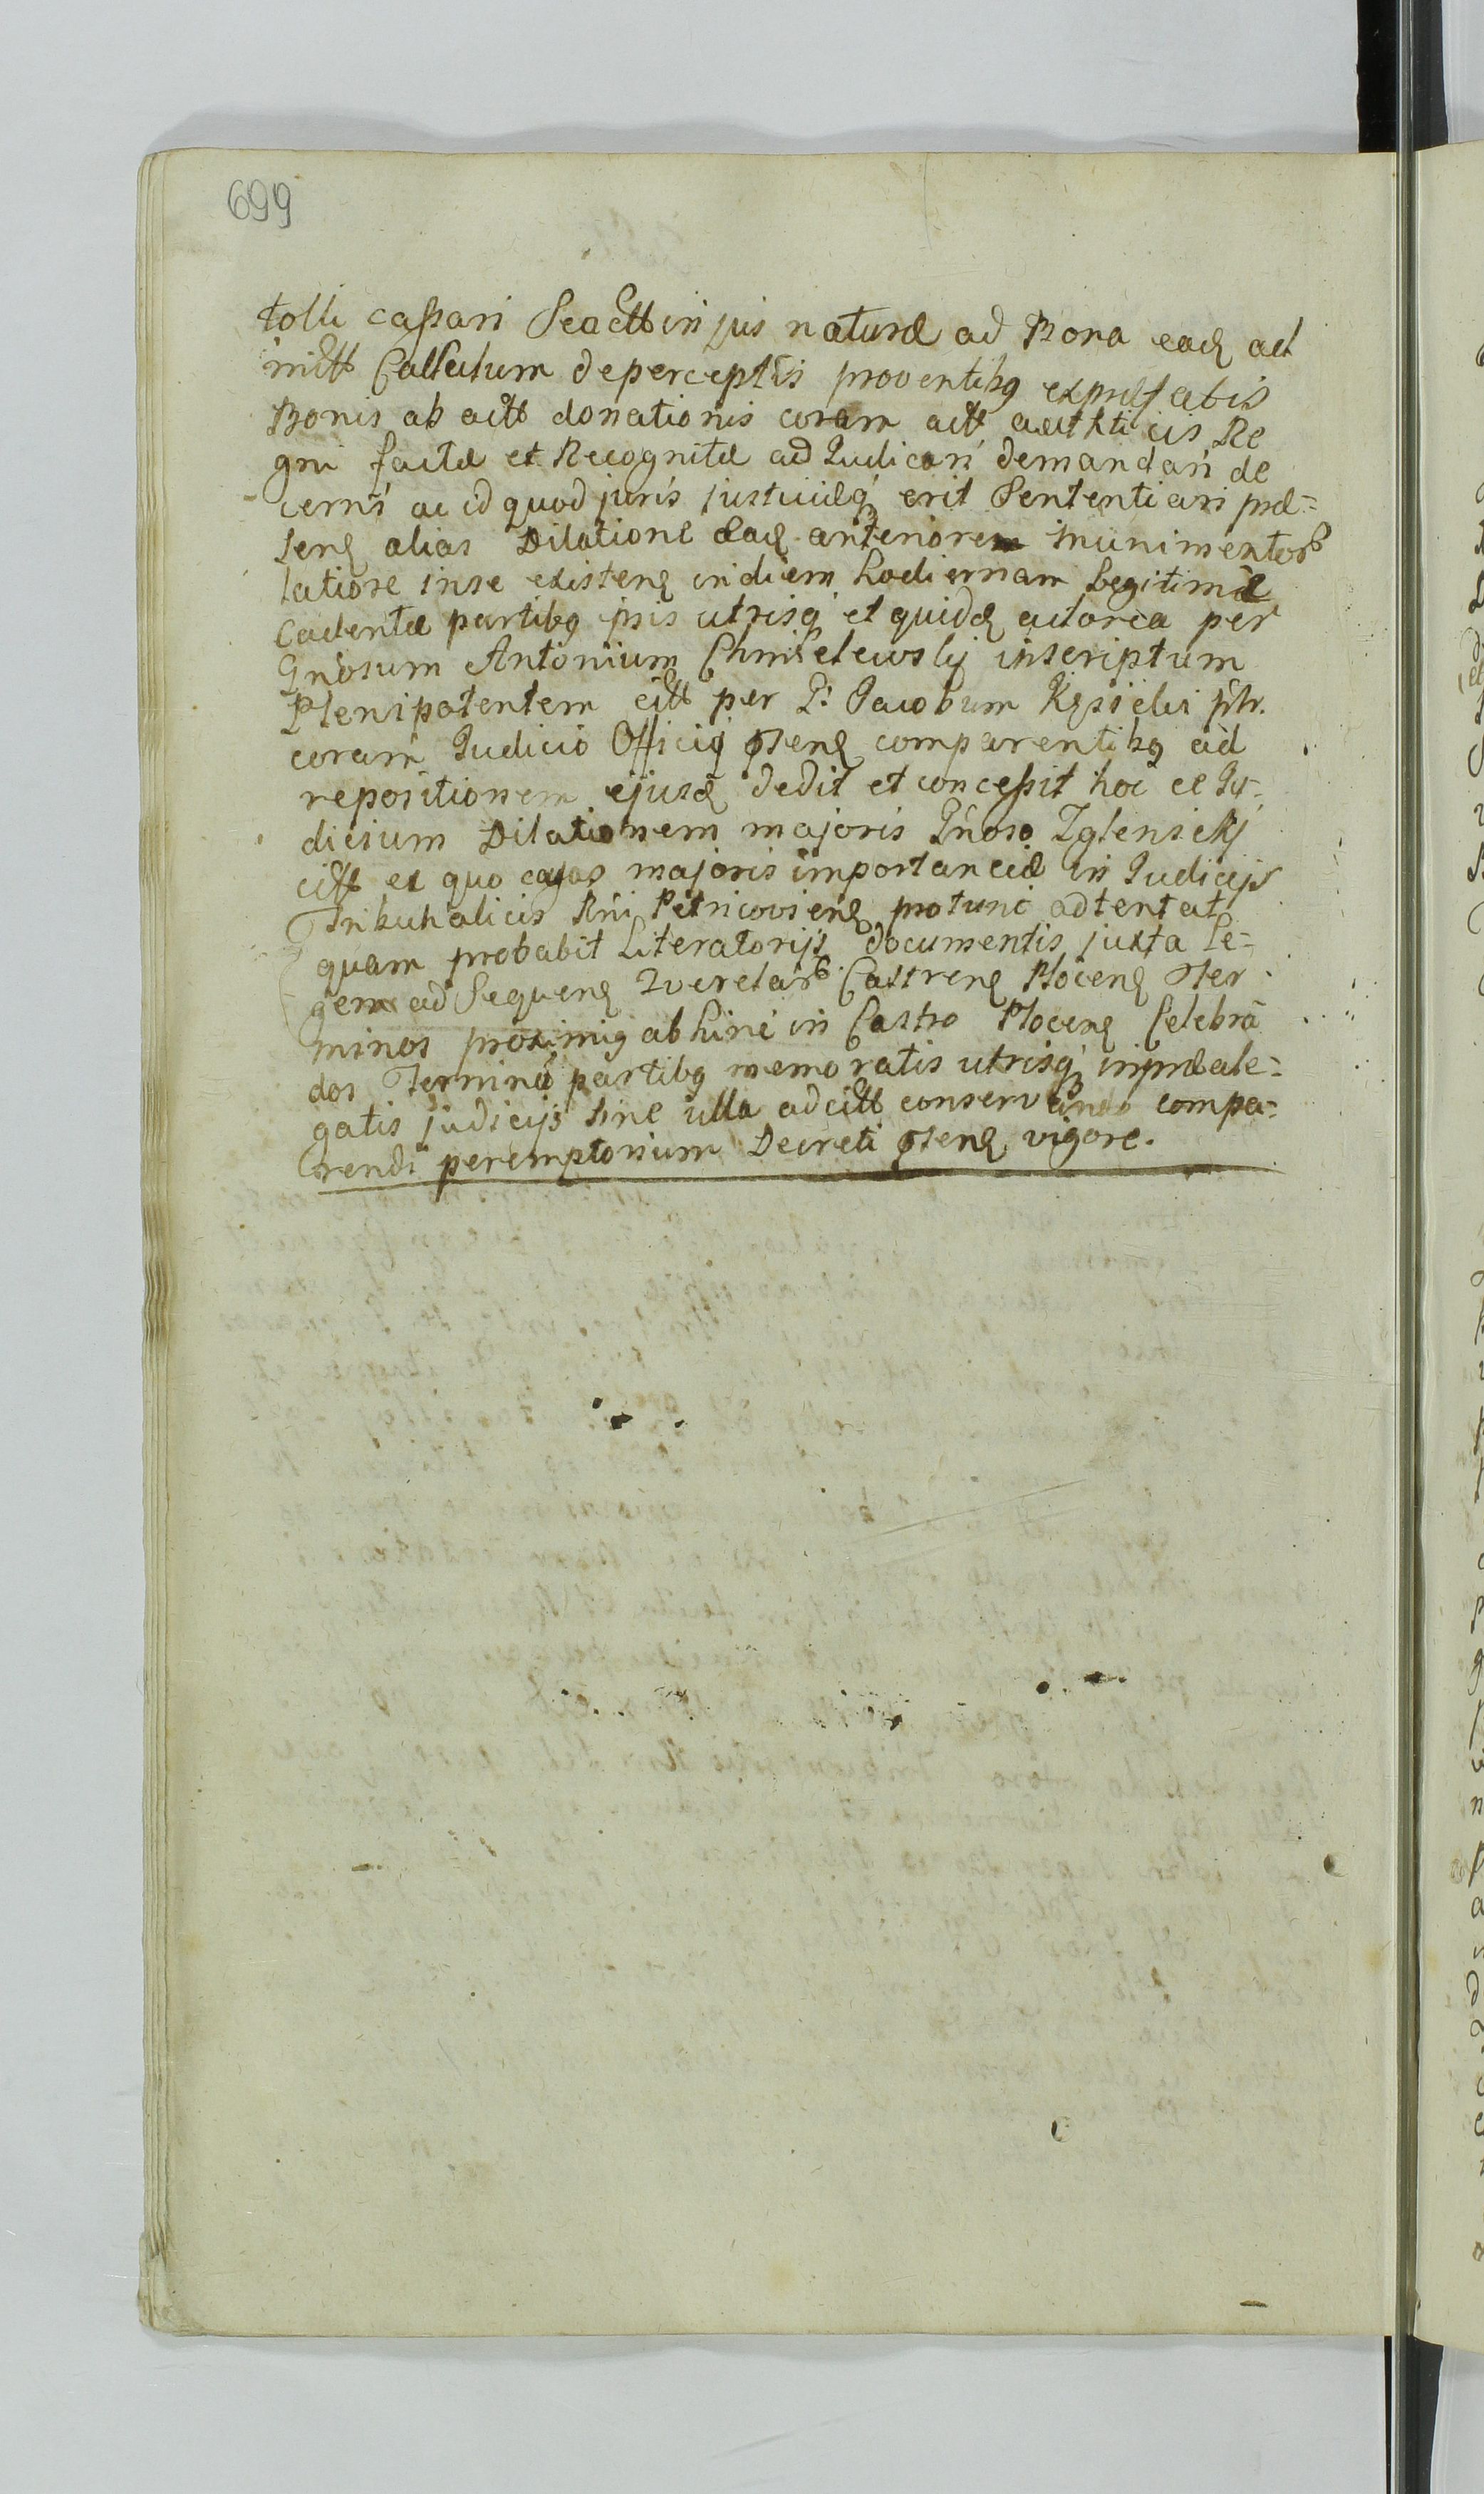 699
tolli cassari Seacttt in jus naturæ ad Bona eadē ad
mitt Calculum de perceptis proventibq expressatis
Bonis ab actt donationis coram actt authticis Re
gni factæ et Recognitæ ad Judicari demandari de
cerni ac id quod juris justitiæq erit Sententiari præ=
senē alias Dilatione eadē anteriorem munimentor
latiore in se existenē in diem hodiernam Legitime
Cadentæ partibq ipsis utrisq et quidē actorea per
Gnosum Antonium Chmielewsky inscriptum
Plenipotentem citt per P: Jacobum Kęsicki ptr.
coram Judicio Officiq pstenē comparentibq ad
repositionem ejusdē dedit et concessit hoc ce Ju-
dicium Dilationem majoris Gnoso Zglenicky
citt ex quo majoris importanciæ in Judicijs
Tribunalicis Rni Petricovienē protunc adtentat
quam probabit Literatorijs documentis juxta Le=
gem ad Sequenē Querelar Castrenē Plocenē Ter
minos proximiq abhinc in Castro Plocenē Celebrā
dos Terminū partibq memoratis utrisq in præale=
gatis judicijs sine ulla adcitt conservando compa=
rendi peremptorium Decreti pstenē vigore.